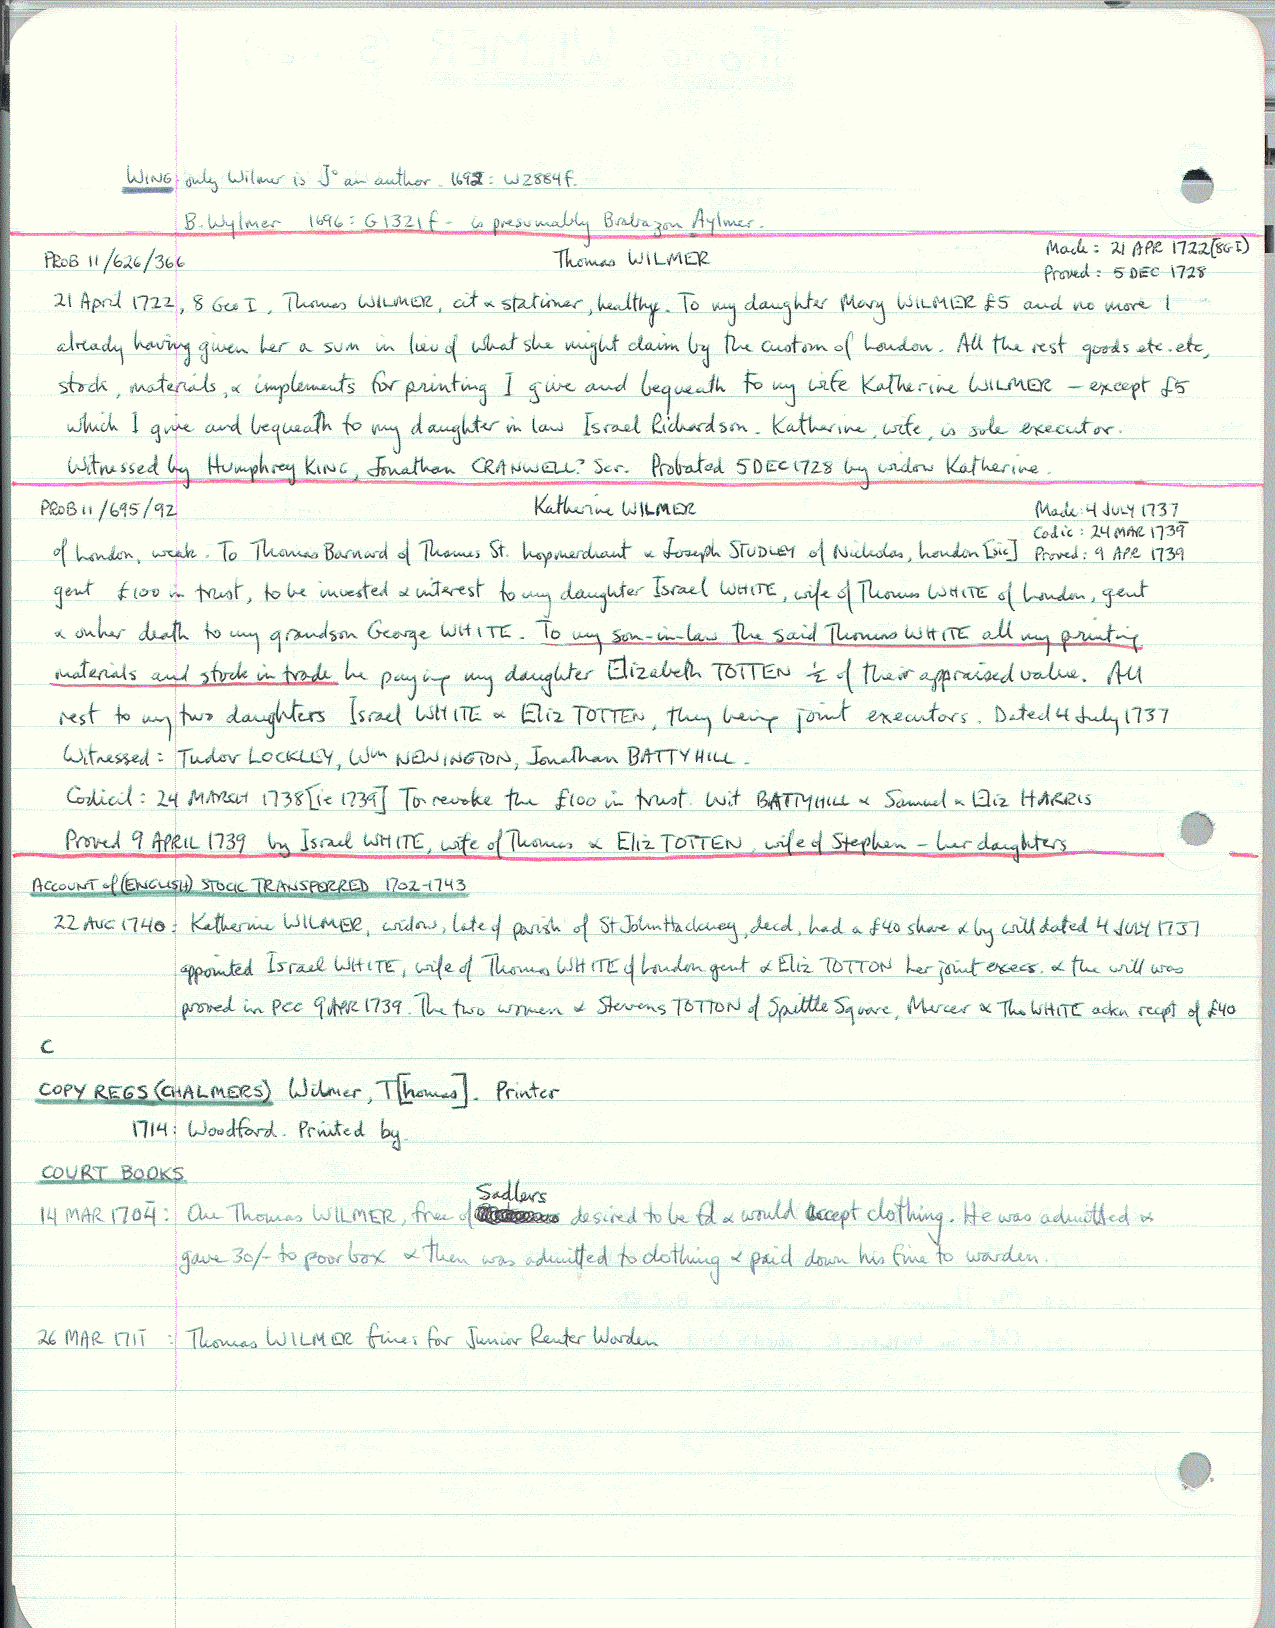 WING only Wilmer is Jº an author. 1692: W2884f.
B. Wylmer 1696: G1321f - is presumably Brabazon Aylmer.
PROB 11/626/366 Thomas WILMER Made: 21 APR 1722 (8G I)
Proved: 5 DEC 1728
21 April 1722, 8 Geo I, Thomas WILMER, cit & stationer, healthy. To my daughter Mary WILMER £5 and no more I
already having given her a sum in lieu of what she might claim by the custom of London. All the rest goods etc. etc,
stock, materials, & implements for printing I give and bequeath to my wife Katherine WILMER - except £5
which I give and bequeath to my daughter in law Israel Richardson. Katherine, wife, is sole executor.
Witnessed by Humphrey KING, Jonathan CRANWELL? Scr. Probated 5 DEC 1728 by widow Katherine.
PROB 11/695/92 Katherine WILMER Made: 4 JULY 1737
Codic: 24 MAR 1739
of London, weak. To Thomas Barnard of Thames St. hopmerchant & Joseph STUDLEY of Nicholas, London [sic] Proved: 9 APR 1739
gent £100 in trust, to be invested & interest to my daughter Israel WHITE, wife of Thomas WHITE of London, gent
& on her death to my grandson George WHITE. To my son-in-law the said Thomas WHITE all my printing
materials and stock in trade he paying my daughter Elizabeth TOTTEN ½ of their appraised value. All
rest to my two daughters Israel WHITE & Eliz TOTTEN, they being joint executors. Dated 4 July 1737
Witnessed: Tudor LOCKLEY, Wm NEWINGTON, Jonathan BATTYHILL.
Codicil: 24 MARCH 1738 [ie 1739] To revoke the £100 in trust. Wit BATTYHILL & Samuel & Eliz HARRIS
Proved 9 APRIL 1739 by Israel WHITE, wife of Thomas & Eliz TOTTEN, wife of Stephen - her daughters
ACCOUNT of (ENGLISH) STOCK TRANSFERRED 1702-1743
22 AUG 1740: Katherine WILMER, widow, late of parish of St John Hackney, decd, had a £40 share & by will dated 4 JULY 1737
appointed Israel WHITE, wife of Thomas WHITE of London gent & Eliz TOTTON her joint execs. & the will was
proved in PCC 9 APR 1739. The two women & Stevens TOTTON of Spittle Square, Mercer & Tho WHITE ackn recpt of £40
C
COPY REGS (CHALMERS) Wilmer, T[homas]. Printer
1714: Woodford. Printed by.
COURT BOOKS
Sadlers
14 MAR 1704: One Thomas WILMER, free of desired to be fd & would accept clothing. He was admitted &
gave 30/- to poor box & then was admitted to clothing & paid down his fine to warden.
26 MAR 1711: Thomas WILMER fines for Junior Renter Warden